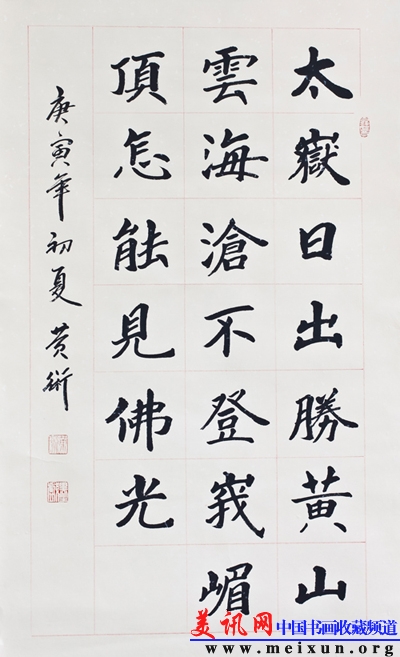 太嶽日出勝黄山
雲海滄不登峩嵋
頂怎能見佛光
庚寅年初夏 黄術
美讯网 中国书画收藏频道
www.meixun.org